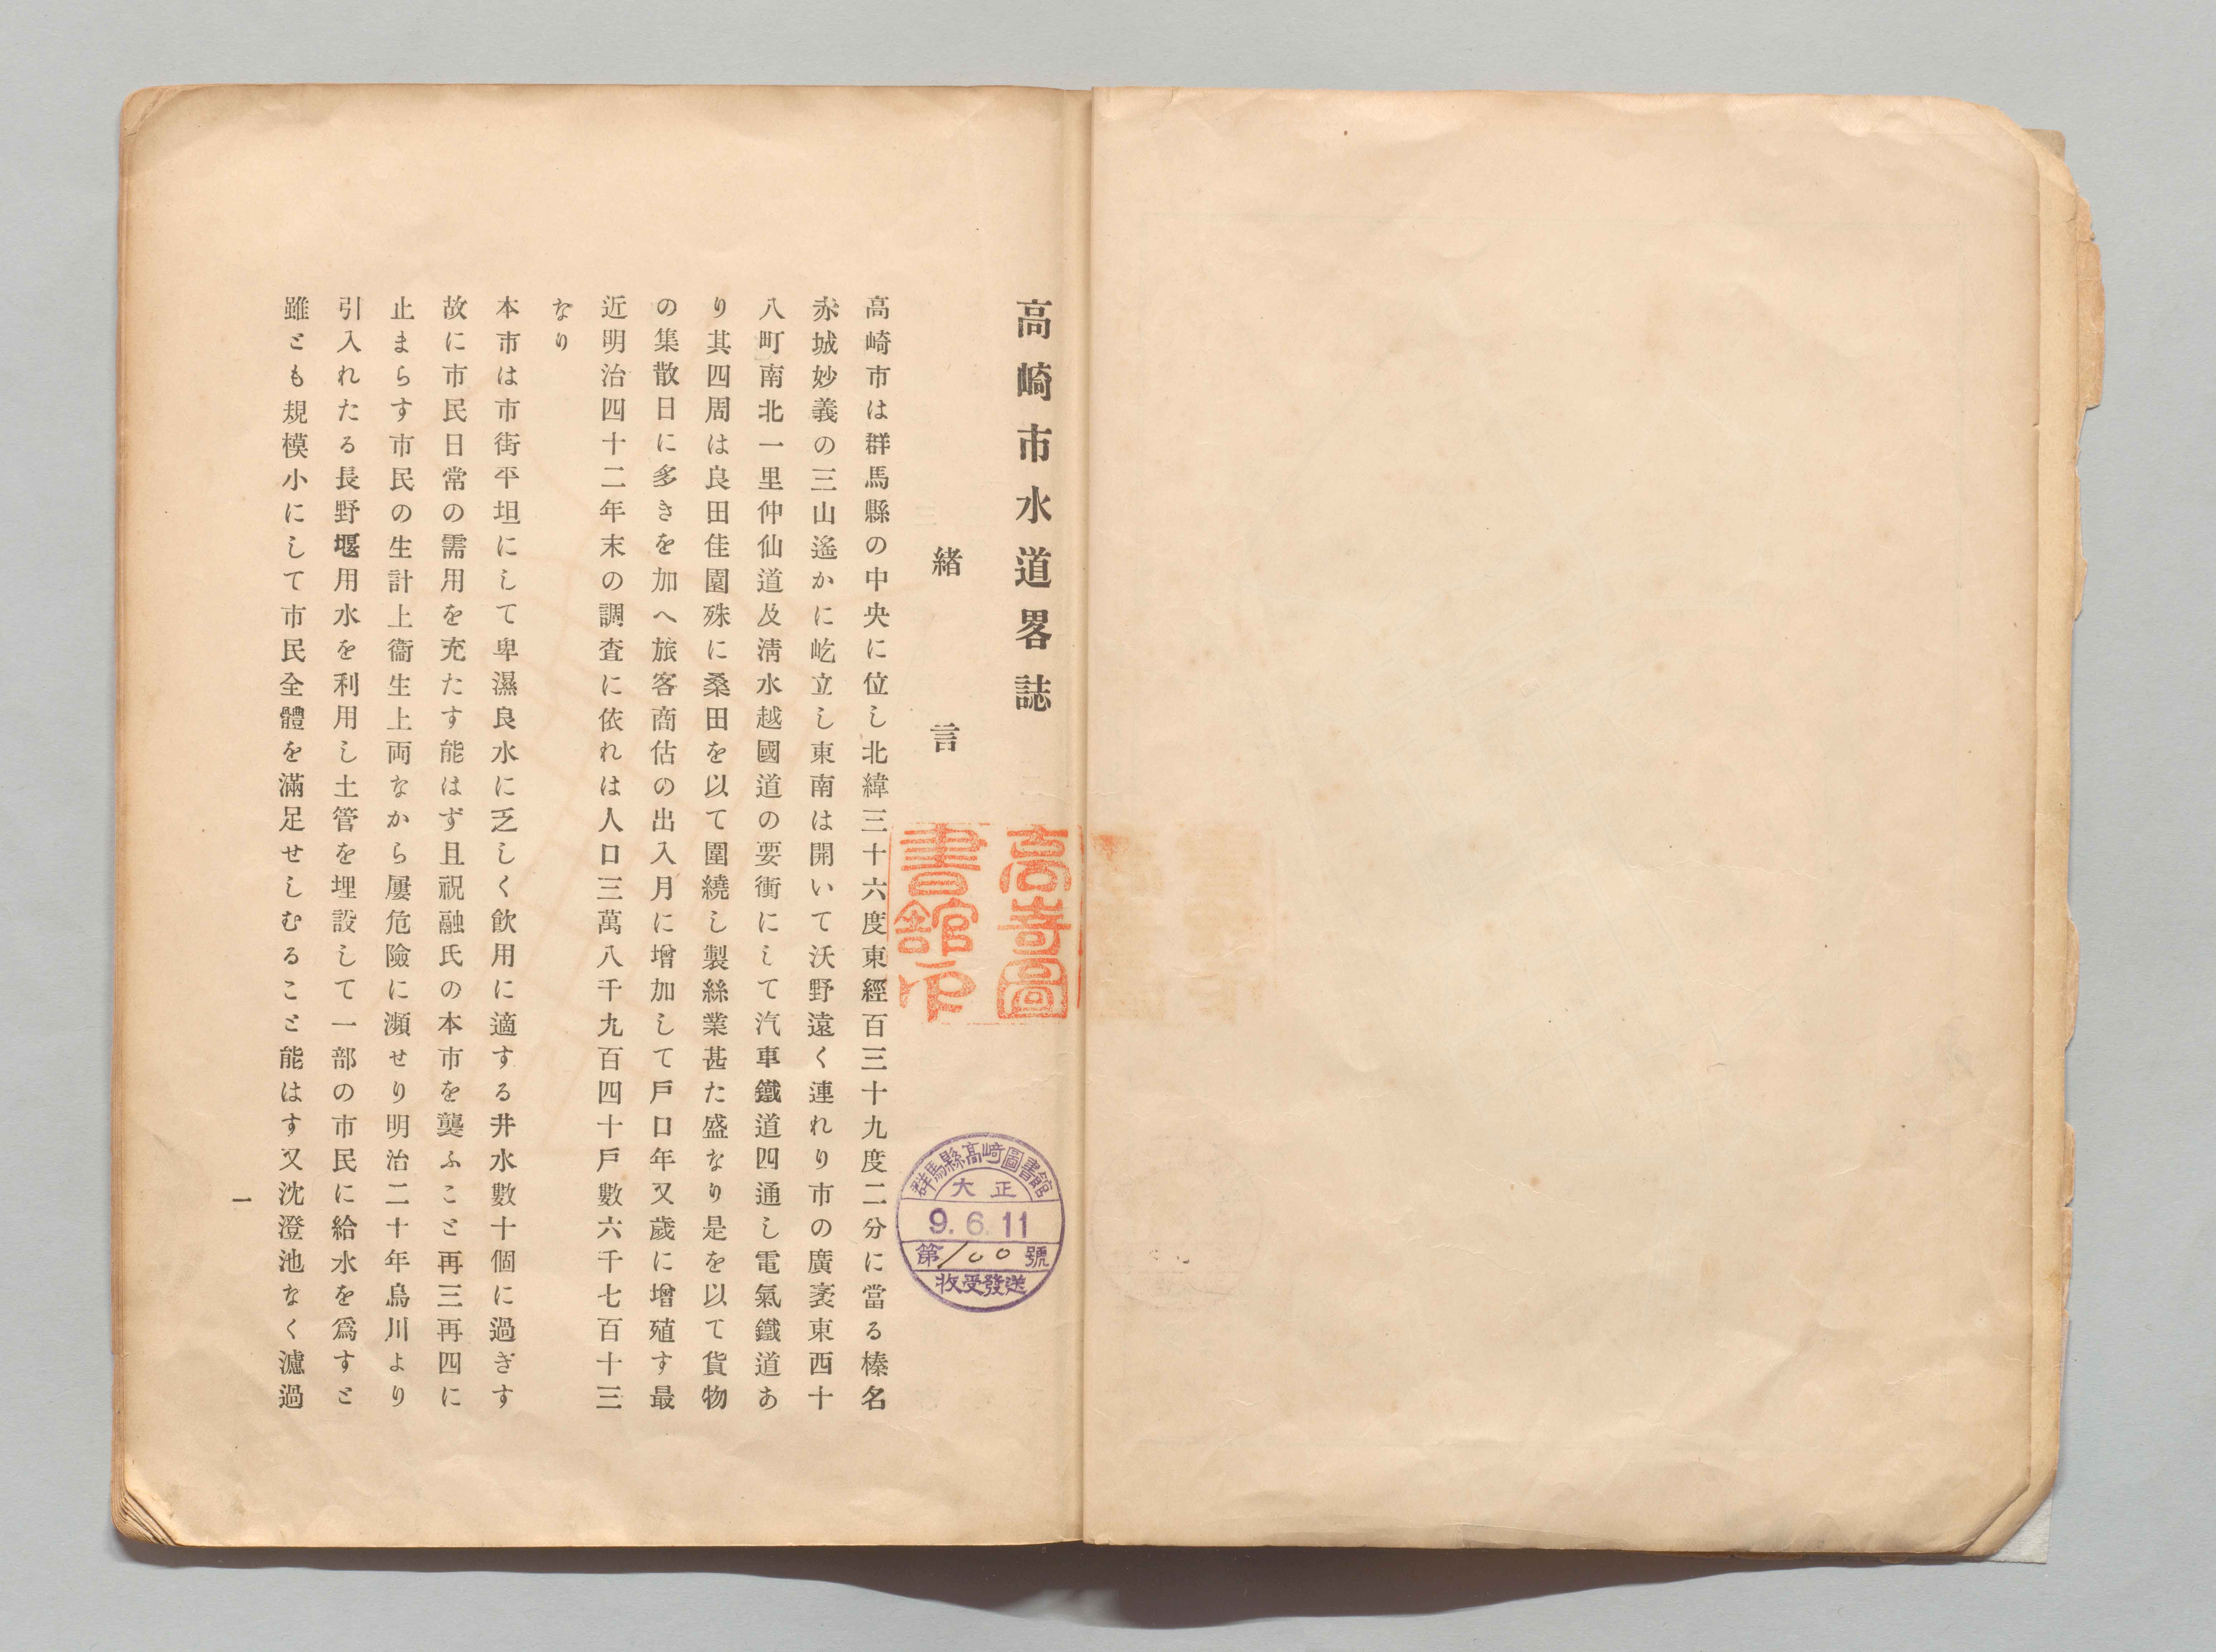 高崎市水道畧誌
緒言
高崎市は群馬縣の中央に位し北緯三十六度東經百三十九度二分に當る榛名
赤城妙義の三山遙かに屹立し東南は開いて沃野遠く連れり市の廣袤東西十
八町南北一里仲仙道及淸水越國道の要衝にして汽車鐵道四通し電氣鐵道あ
り其四周は良田佳園殊に桑田を以て圍繞し製絲業甚た盛なり是を以て貨物
の集散日に多きを加へ旅客商估の出入月に增加して戶口年又歲に增殖す最
近明治四十二年末の調査に依れは人口三萬八千九百四十戶數六千七百十三
なり
本市は市街平坦にして卑濕良水に乏しく飮用に適する井水數十個に過ぎす
故に市民日常の需用を充たす能はず且祝融氏の本市を襲ふこと再三再四に
止まらす市民の生計上衞生上両なから屢危險に瀕せり明治二十年烏川より
引入れたる長野堰用水を利用し土管を埋設して一部の市民に給水を爲すと
雖とも規模小にして市民全體を滿足せしむること能はす又沈澄池なく濾過
一
高崎圖
書館印
群馬縣高崎圖書館
大正
9.6.11
第100號
收受發送